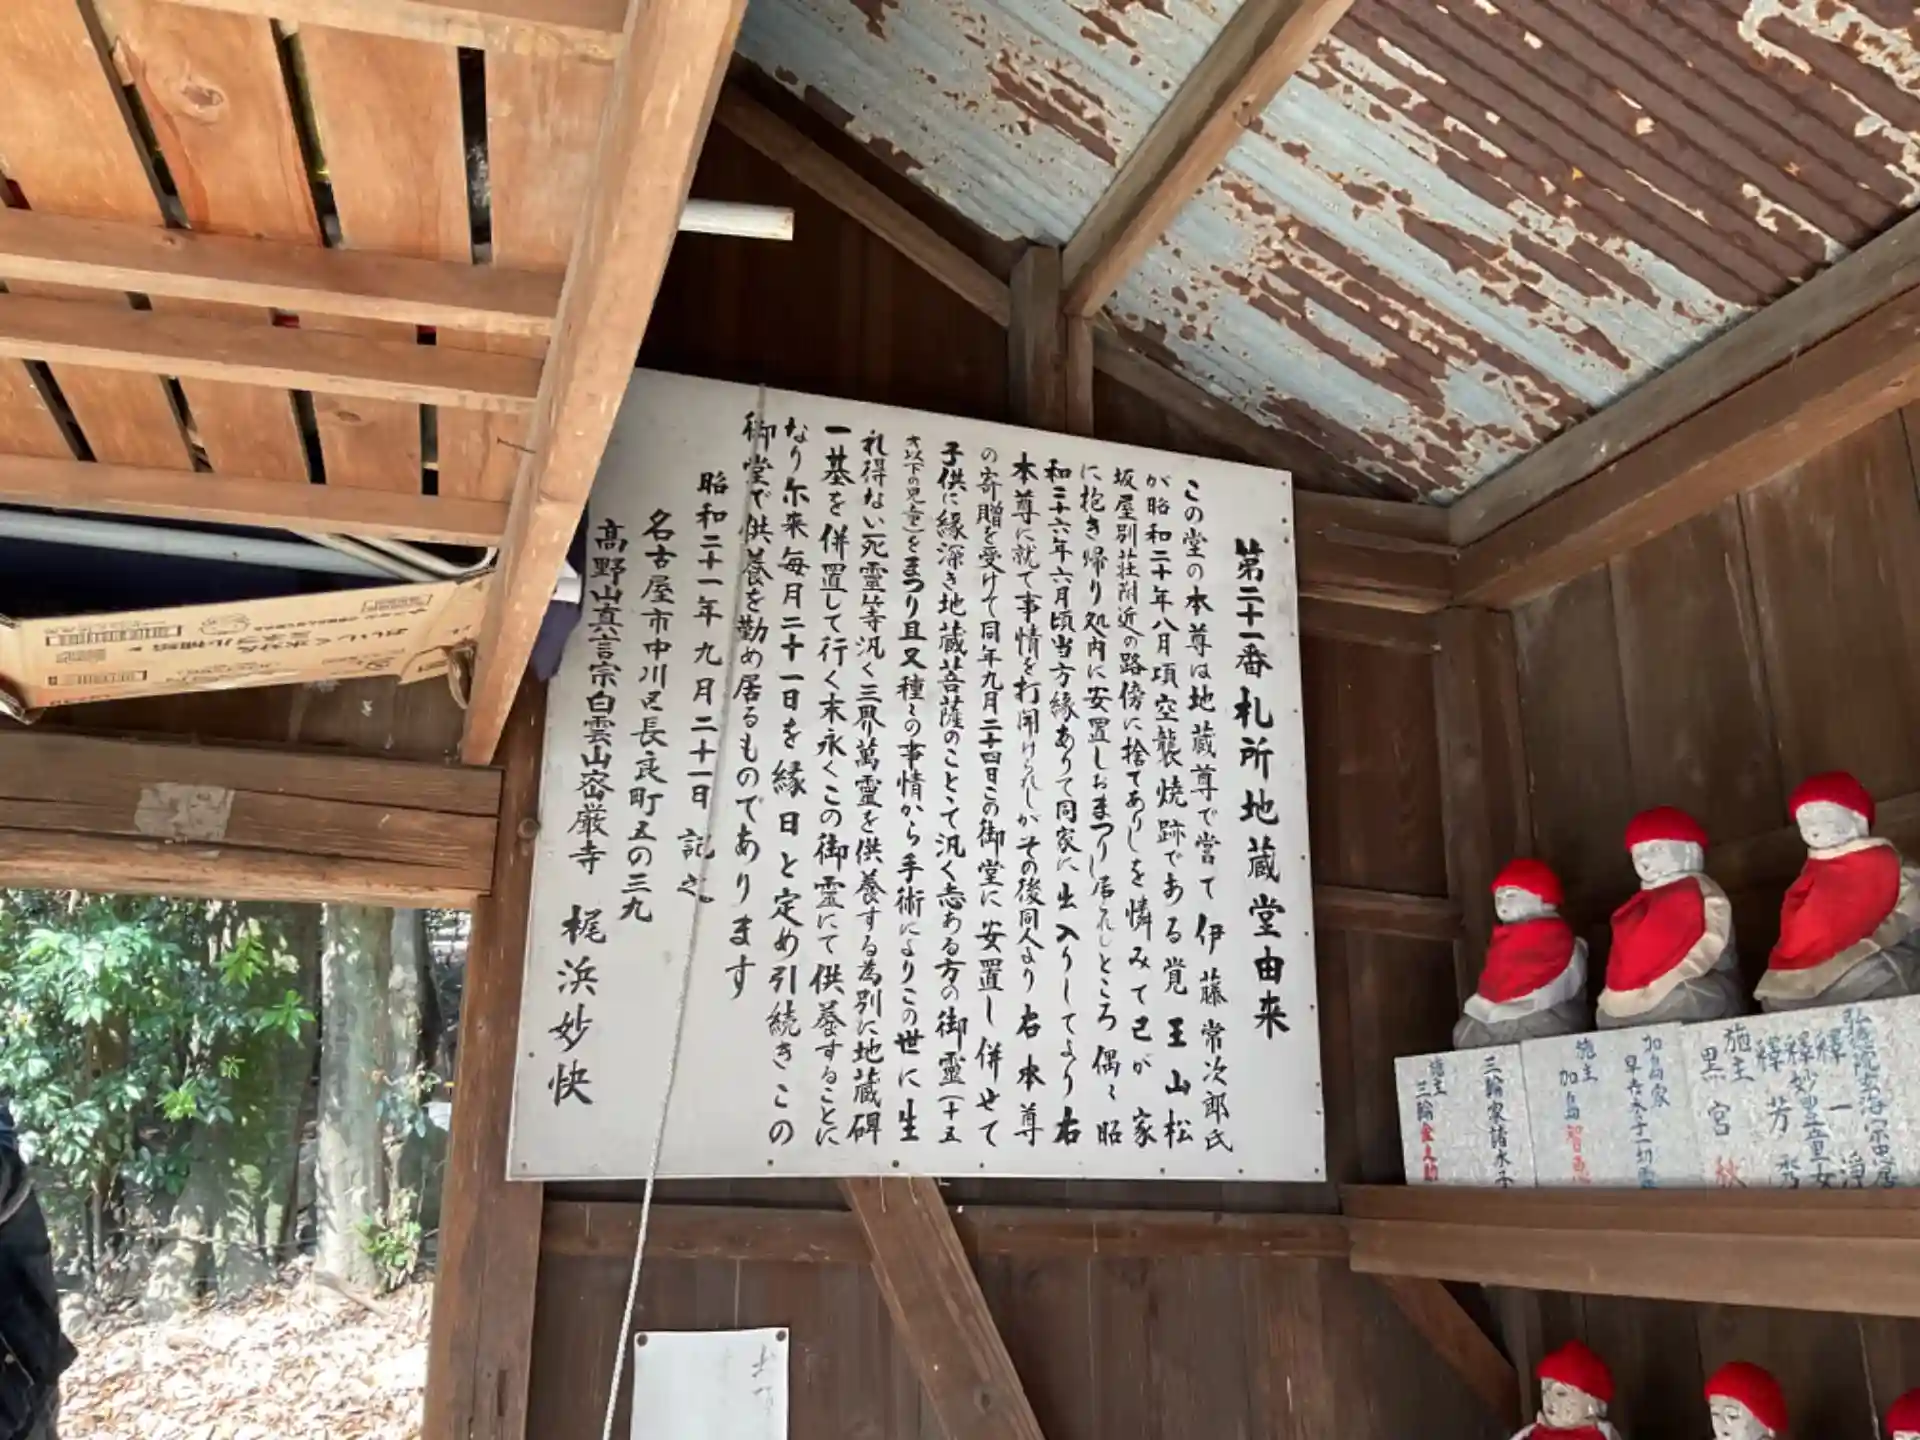 第二十一番札所地蔵堂由来
この堂の本尊は地蔵尊で嘗て伊藤常次郎氏
が昭和二十年八月頃空襲焼跡である覚王山松
坂屋別荘附近の路傍に捨てありしを憐みて己が家
に抱き帰り処内に安置しおまつりし居れしところ偶々昭
和三十六年六月頃当方縁ありて同家に出入りしてより右
本尊に就て事情を打開けられしがその後同人より右本尊
の寄贈を受けて同年九月二十四日この御堂に安置し併せて
子供に縁深き地蔵菩薩のことて汎く志ある方の御霊(十五
才以下の児童)をまつり且又種々の事情から手術によりこの世に生
れ得ない死霊等汎く三界萬霊を供養する為別に地蔵碑
一基を併置して行く末永くこの御霊にて供養することに
なり尓来毎月二十一日を縁日と定め引続きこの
御堂で供養を勤め居るものであります
昭和二十一年九月二十一日 記之
名古屋市中川区長良町五の三九
高野山真言宗白雲山密厳寺 梶浜妙快
弘法院宏海宗忠居
釋一浄
釋妙聖童女
釋芳秀
施主 黒宮秋
加島家
早去水子一切霊
施主 加島智恵
三輪家諸水子
施主 三輪金久助